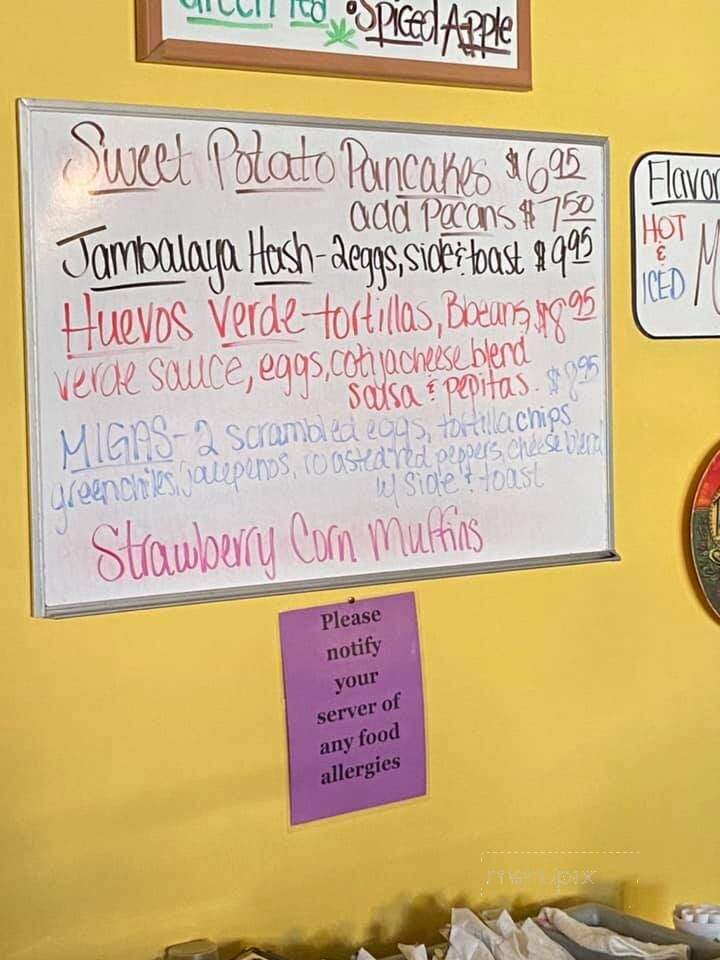 Green Tea •Spiced Apple
Sweet Potato Pancakes $6.95
add Pecans $7.50
Jambalaya Hash-2eggs,side & toast $9.95
Huevos Verde-tortillas, Bbeans, $8.95
verde sauce, eggs, cotija cheese blend
salsa & pepitas. $8.95
MIGAS-2 scrambled eggs, tortilla chips
green chiles, jalepenos, roasted red peppers, cheese blend
w/ side & toast
Strawberry Corn Muffins
Flavor
HOT
&
ICED
M
Please
notify
your
server of
any food
allergies